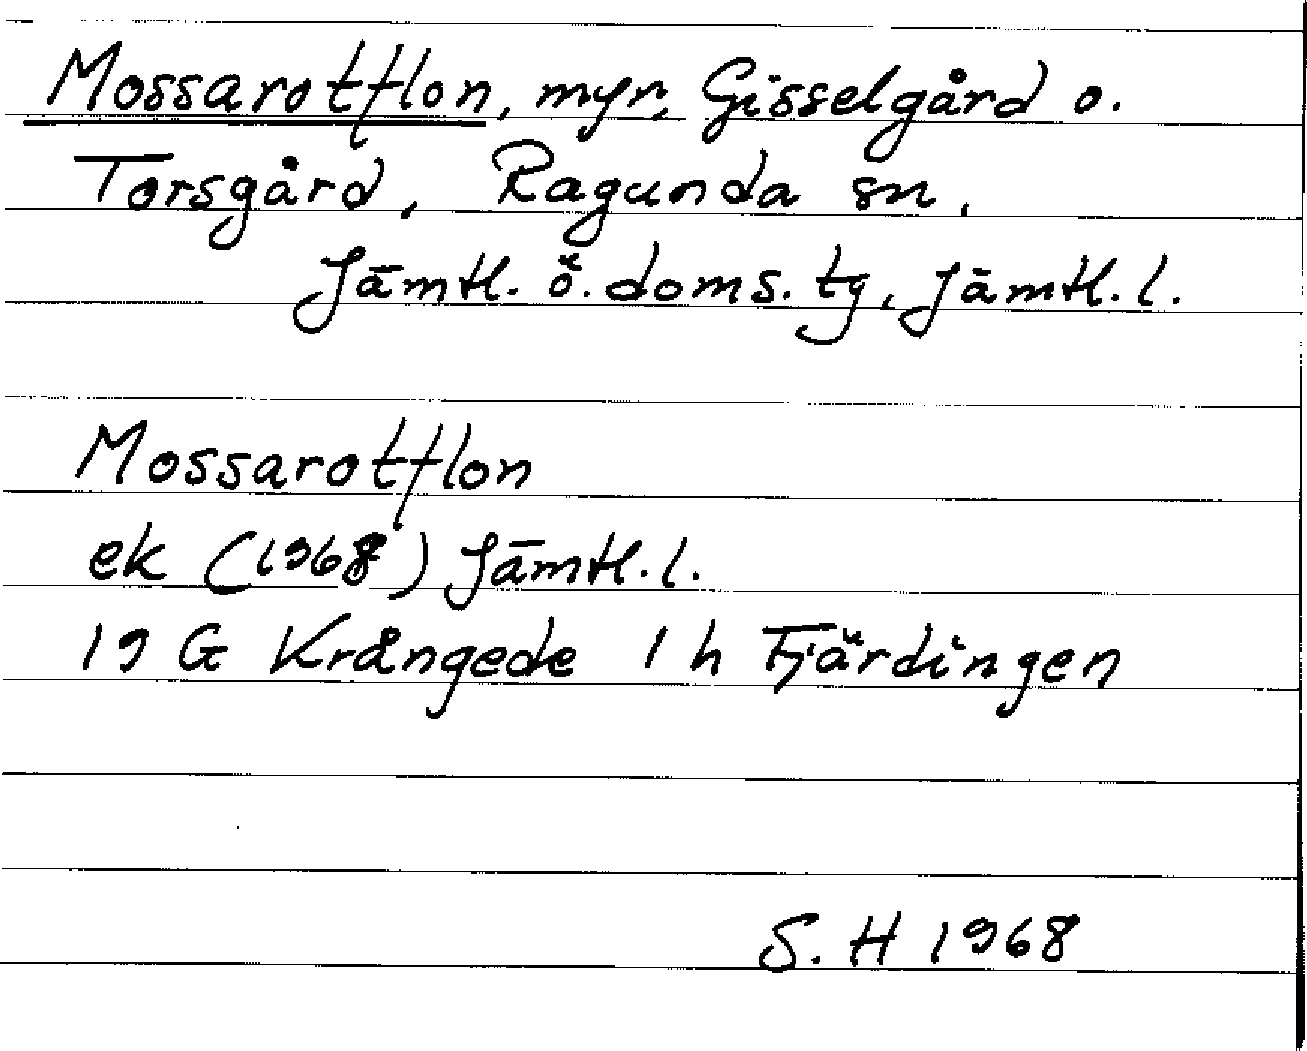 Mossarotflon, myr, Gisselgård o.
Torsgård, Ragunda sn,
Jämtl. ö. doms. tg, Jämtl. l.
Mossarotflon
ek (1968) Jämtl. l.
19 G Krångede 1 h Fjärdingen
S. H 1968